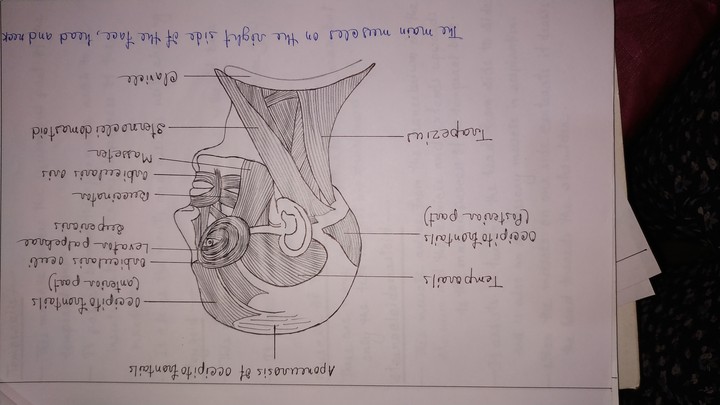 Aponeurosis of occipitofrontails
Occipitofrontails
(anterior part)
Orbicularis oculi
Levator palpebrae
superioris
Buccinator
Orbicularis oris
Masseter
Sternocleidomastoid
Clavicle
Temporails
Occipitofrontails
(Posterior part)
Trapezius
The main muscles on the right side of the face, head and neck